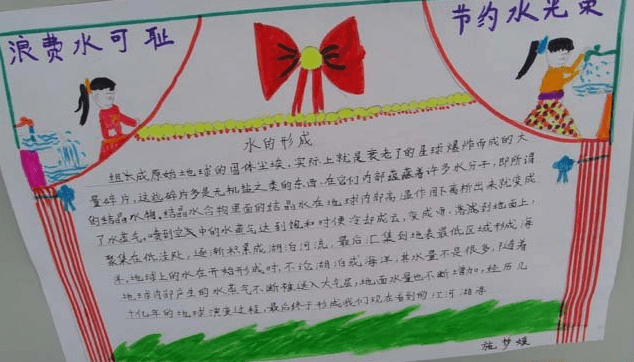 浪费水可耻
节约水光荣
水的形成
组成原始地球的固体尘埃，实际上就是衰老了的星球爆炸而成的大
量碎片，这些碎片多是无机盐之类的东西，在它们内部蕴藏着许多水分子，即所谓
的结晶水物。结晶水合物里面的结晶水在地球内部高温作用下离析出来就变成
了水蒸气。喷到空中的水蒸气达到饱和时便冷却成云，变成雨，落到地面上，
聚集在低洼处，逐渐积累成湖泊河流，最后汇集到地表最低区域形成海
洋。地球上的水在开始形成时，不论湖泊或海洋，其水量不是很多，随着
地球内部产生的水蒸气不断被送入大气层，地面水量也不断增加，经历几
十亿年的地球演变过程，最后终于形成我们现在看到的江河湖海
施梦媛